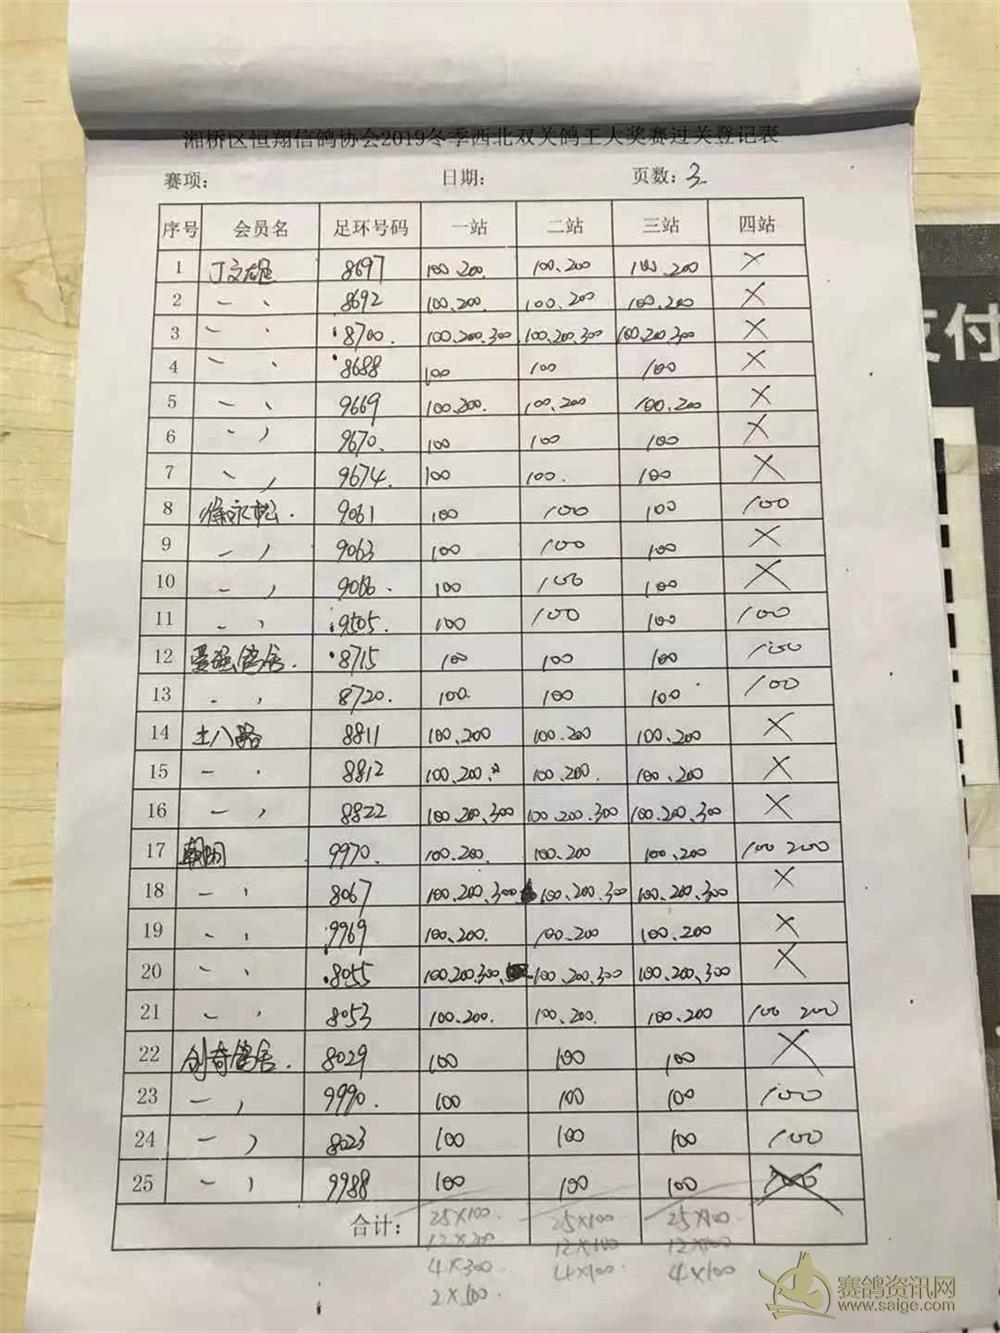 湘桥区恒翔信鸽协会2019冬季西北双关鸽王大奖赛过关登记表
赛项: 日期: 页数: 3
序号 会员名 足环号码 一站 二站 三站 四站
1 丁文雄 8697 100.200. 100.200 100.200 ×
2 〃 8692 100.200. 100.200 100.200 ×
3 〃 8700. 100.200.300 100.200.300 100.200.300 ×
4 〃 8688 100 100 100 ×
5 〃 9669 100.200. 100.200 100.200 ×
6 〃 9670. 100 100 100 ×
7 〃 9674. 100 100. 100 ×
8 徐永松. 9061 100 100 100 100
9 〃 9063 100 100 100 ×
10 〃 9066. 100 100 100 ×
11 〃 9505. 100 100 100 100
12 鸽舍. 8715 100 100 100 100
13 〃 8720. 100. 100 100 100
14 土八路 8811 100.200 100.200 100.200 ×
15 〃 8812 100.200. 100.200. 100.200 ×
16 〃 8822 100.200.300 100.200.300 100.200.300 ×
17 朝阳 9970. 100.200. 100.200 100.200 100 200
18 〃 8067 100.200.300 100.200.300 100.200.300 ×
19 〃 9969 100.200. 100.200 100.200 ×
20 〃 .8055 100.200.300. 100.200.300 100.200.300 ×
21 〃 8053 100.200. 100.200. 100.200 100 200
22 创奇鸽舍. 8029 100 100 100 ×
23 〃 9990. 100 100 100 100
24 〃 8023 100 100 100 100
25 〃 9988 100 100 100 100
合计: 25×100. 25×100 25×100
12×200 12×100 12×100
4×300 4×100 4×100
2×100.
支付
赛鸽资讯网
www.saige.com